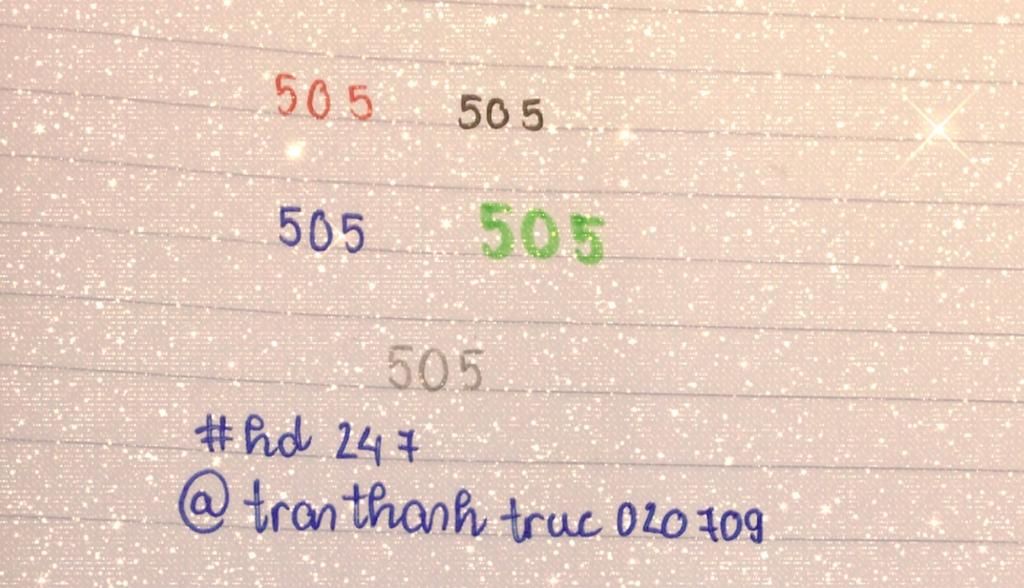 505 505
505 505
505
#hd 247
@tranthanh truc 020709